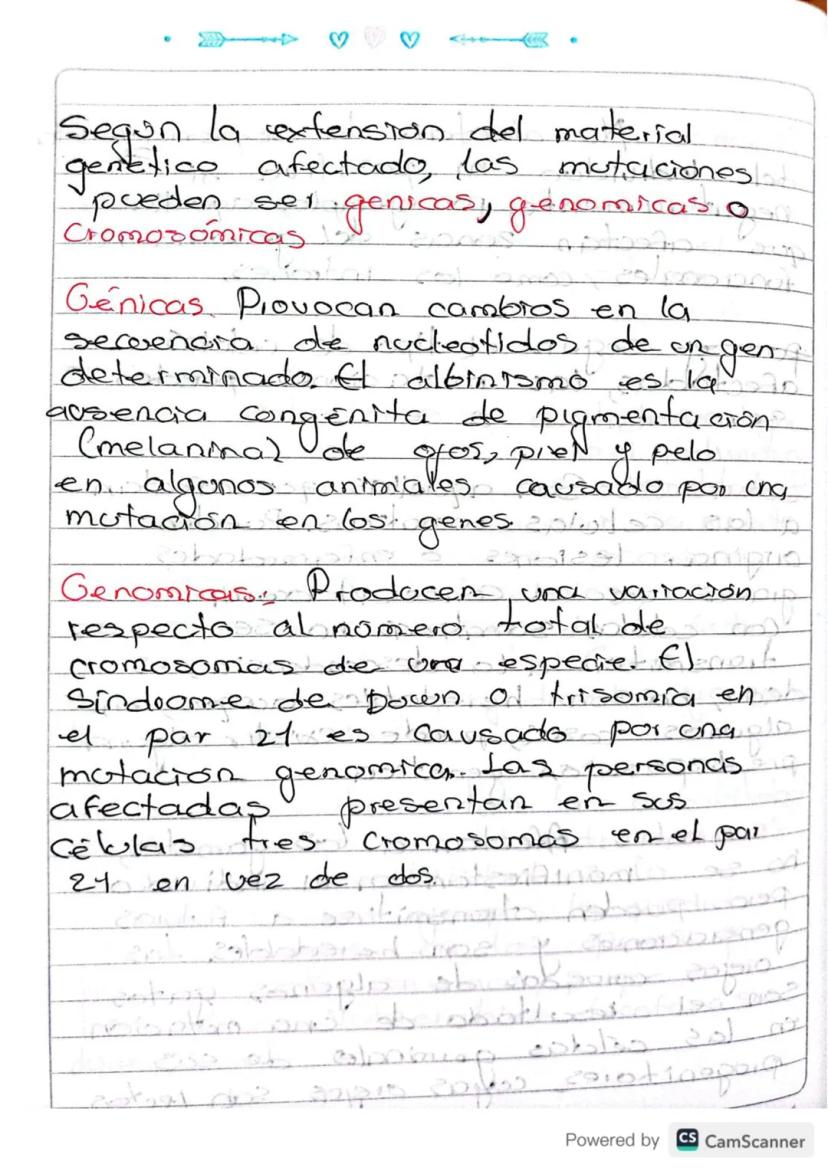 Según la extensión del material
genético afectado, las mutaciones
pueden ser genicas, genomicas o
Cromosómicas
Génicas Provocan cambios en la
secuencia de nucleotidos de un gen
determinado. El albinismo es la
ausencia congénita de pigmentación
(melanina) de ojos, piel y pelo
en algunos animales causado por una
mutación en los genes.
Genomicas: Producen una variación
respecto al número total de
cromosomas de una especie. El
Síndrome de Down o trisomía en
el par 21 es causado por una
mutación genomica. Las personas
afectadas presentan en sus
Células tres Cromosomas en el par
21 en vez de dos.
Powered by CS CamScanner